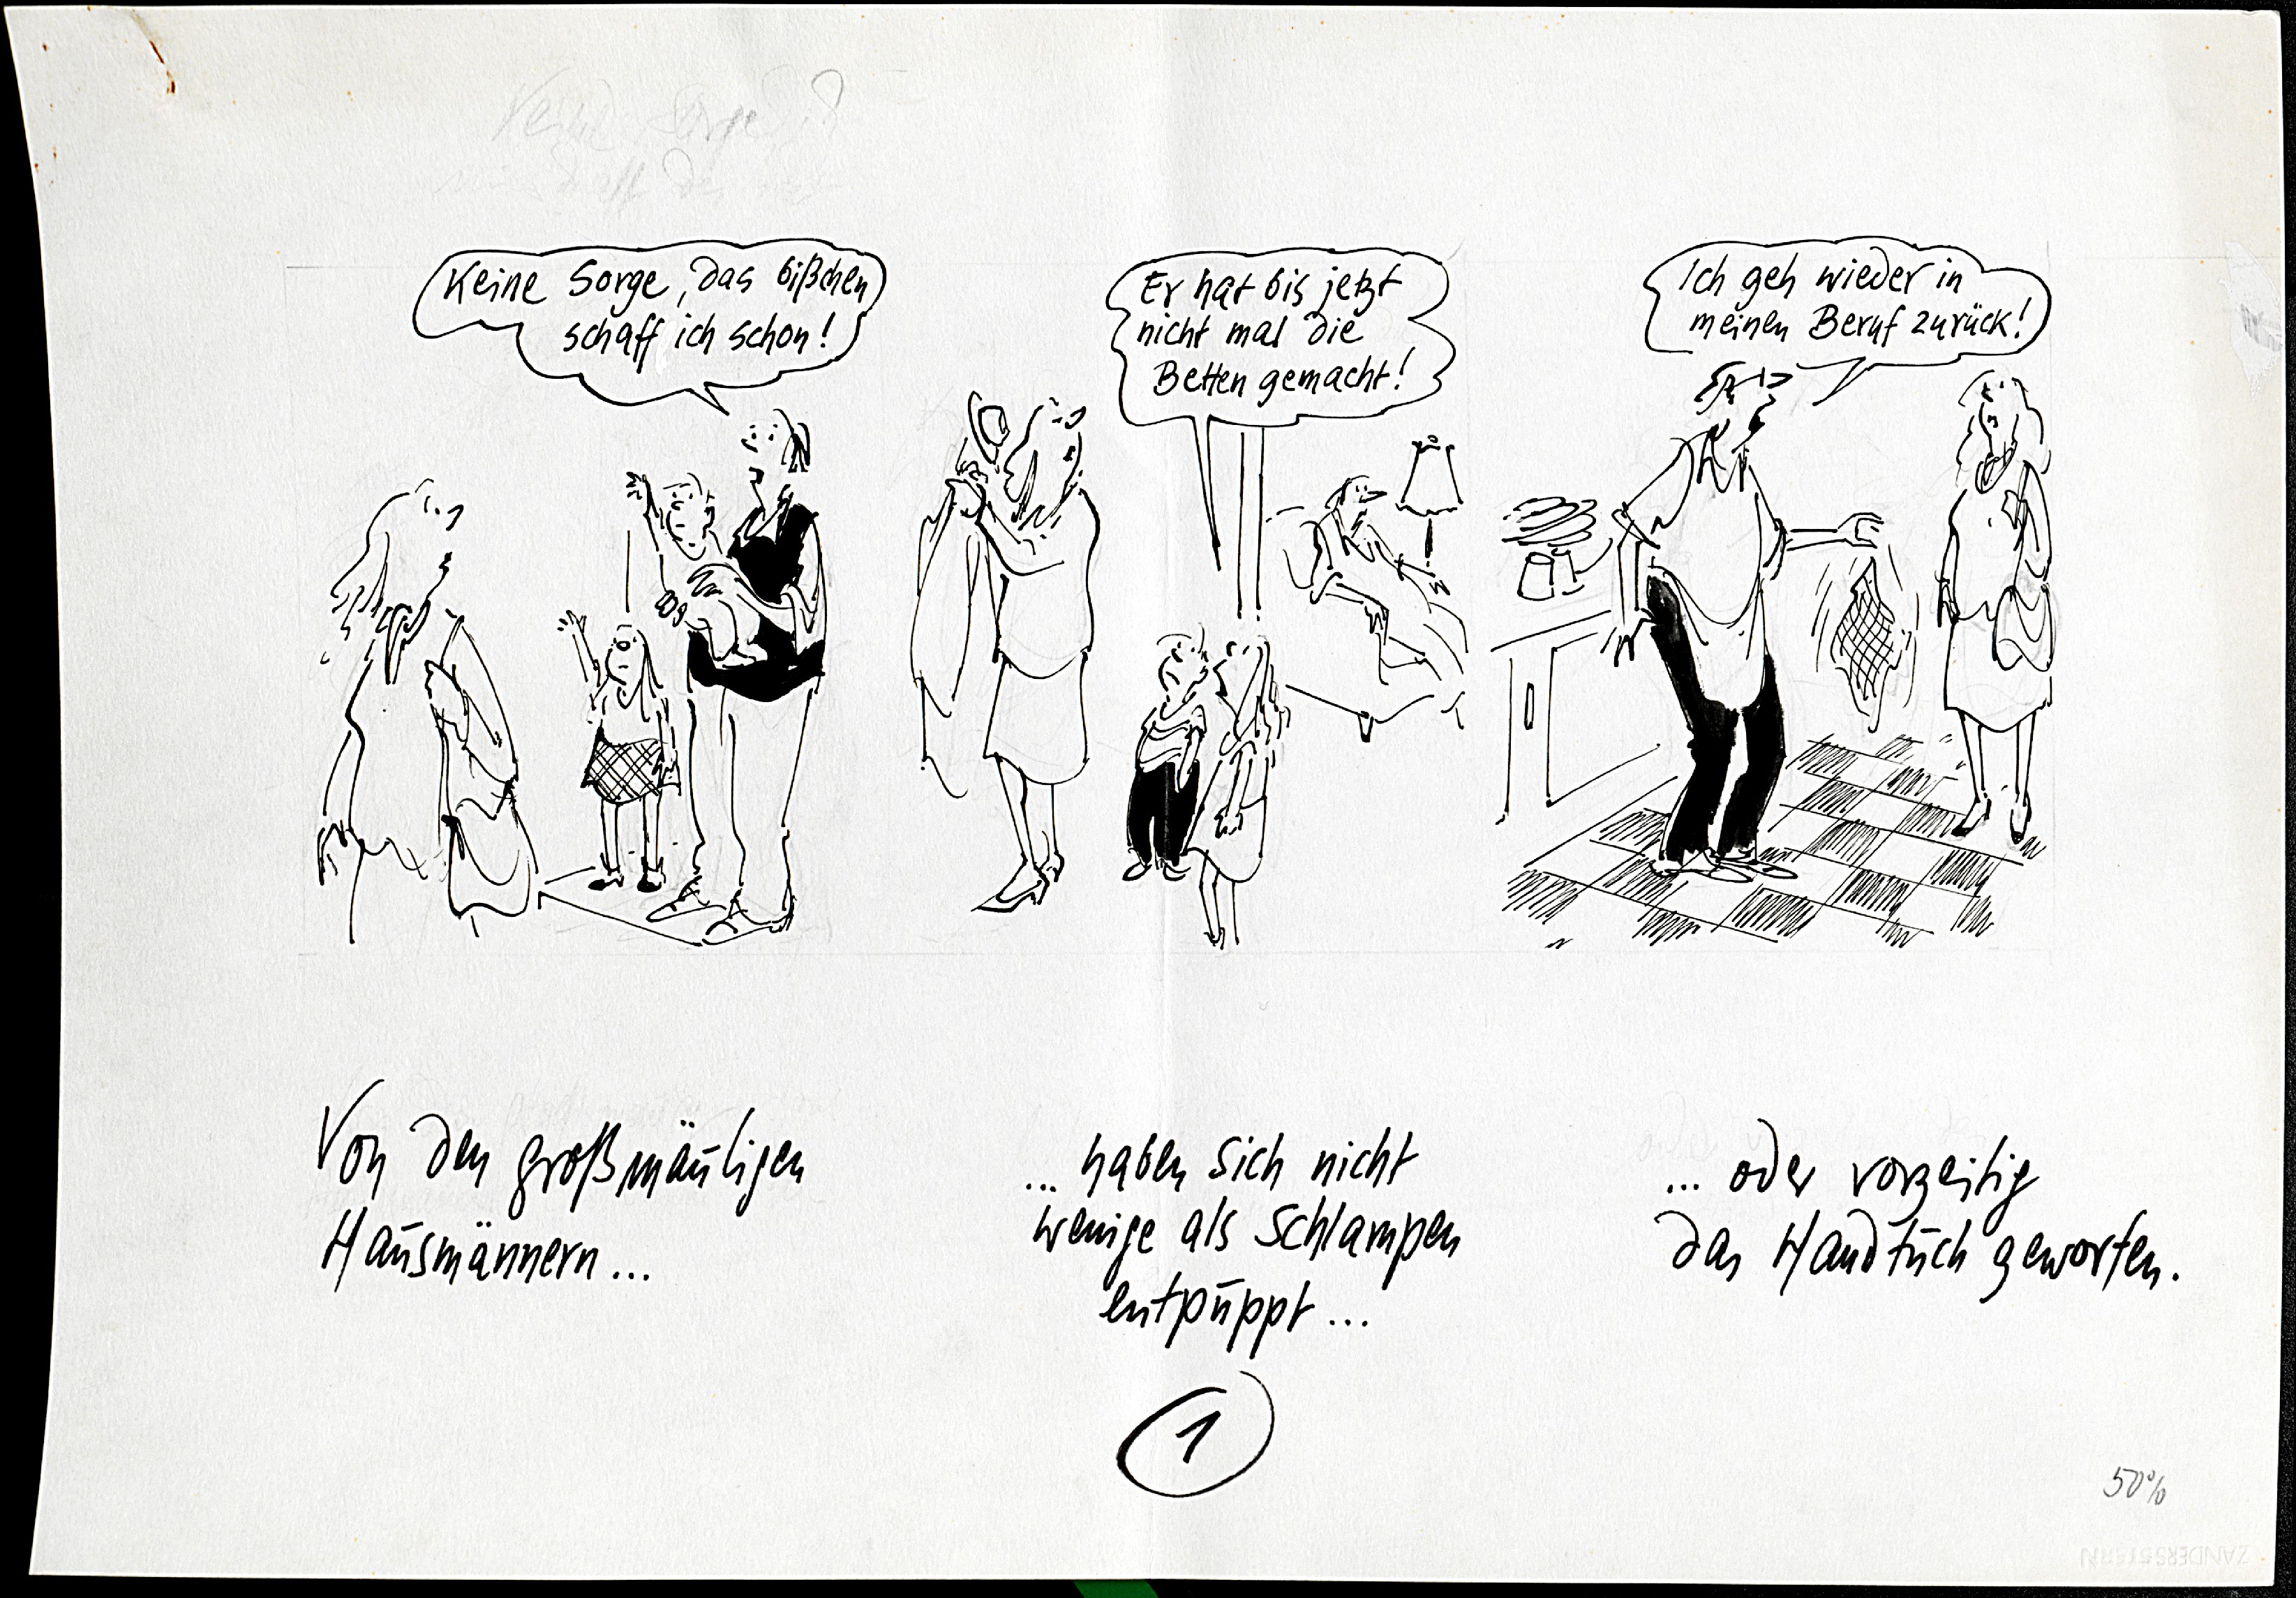 Keine Sorge, das bißchen
schaff ich schon!
Er hat bis jetzt
nicht mal die
Betten gemacht!
Ich geh wieder in
meinen Beruf zurück!
Von den großmäuligen
Hausmännern...
... haben sich nicht
wenige als Schlampen
entpuppt...
... oder vorzeitig
das Handtuch geworfen.
1
50%
ZANDERS